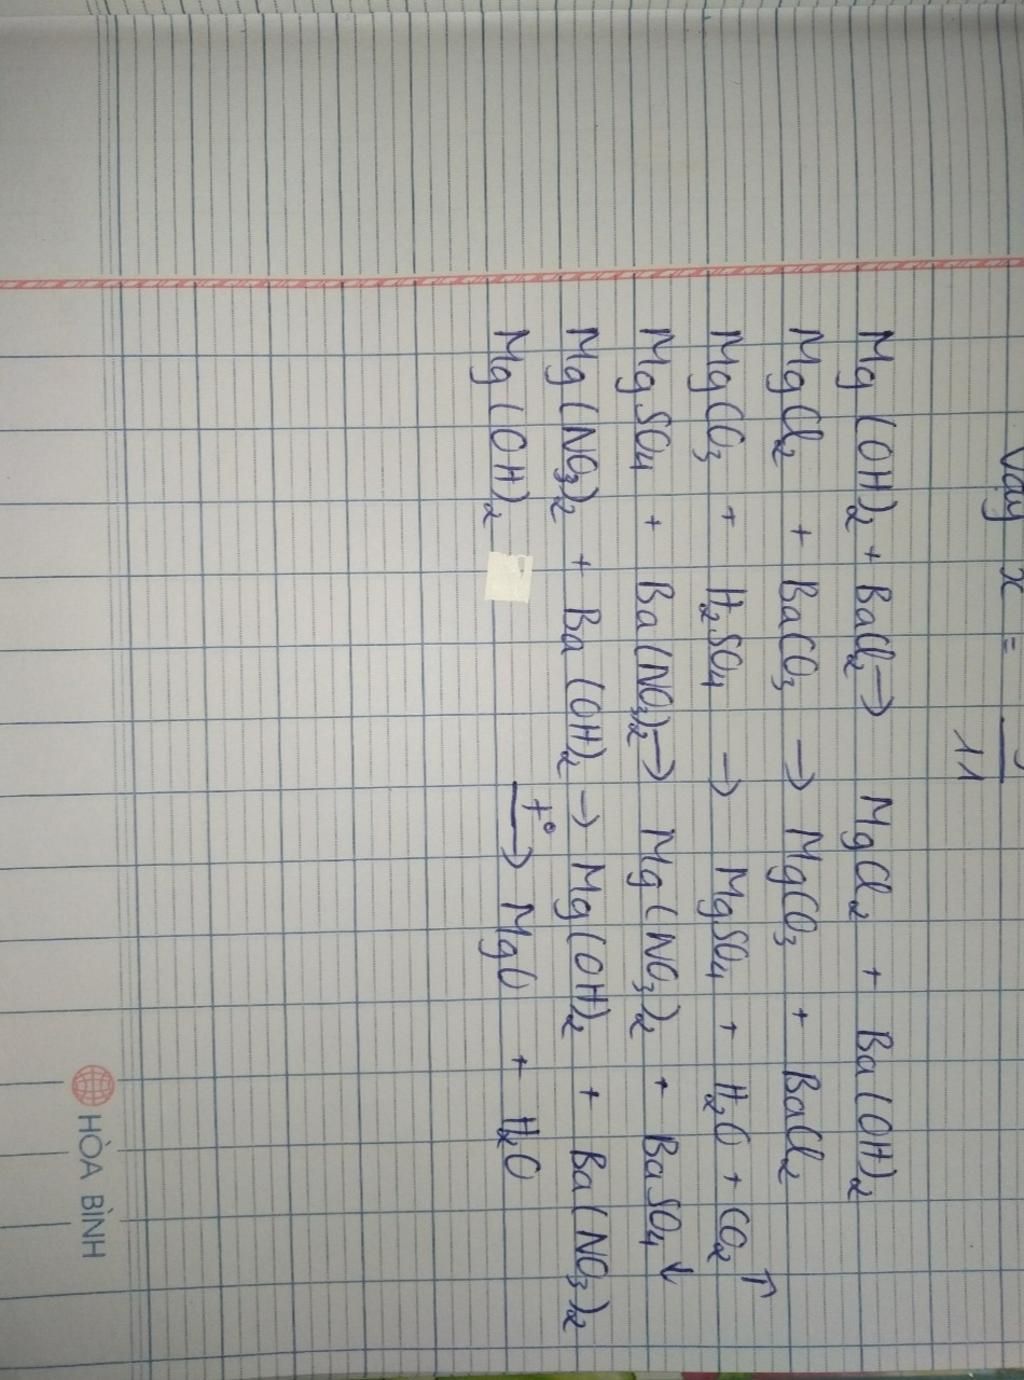 Vậy x =
11
Mg(OH)₂ + BaCl₂ → MgCl₂ + Ba(OH)₂
MgCl₂ + BaCO₃ → MgCO₃ + BaCl₂
MgCO₃ + H₂SO₄ → MgSO₄ + H₂O + CO₂ ↑
MgSO₄ + Ba(NO₃)₂ → Mg(NO₃)₂ + BaSO₄ ↓
Mg(NO₃)₂ + Ba(OH)₂ → Mg(OH)₂ + Ba(NO₃)₂
Mg(OH)₂ t° → MgO + H₂O
HÒA BÌNH